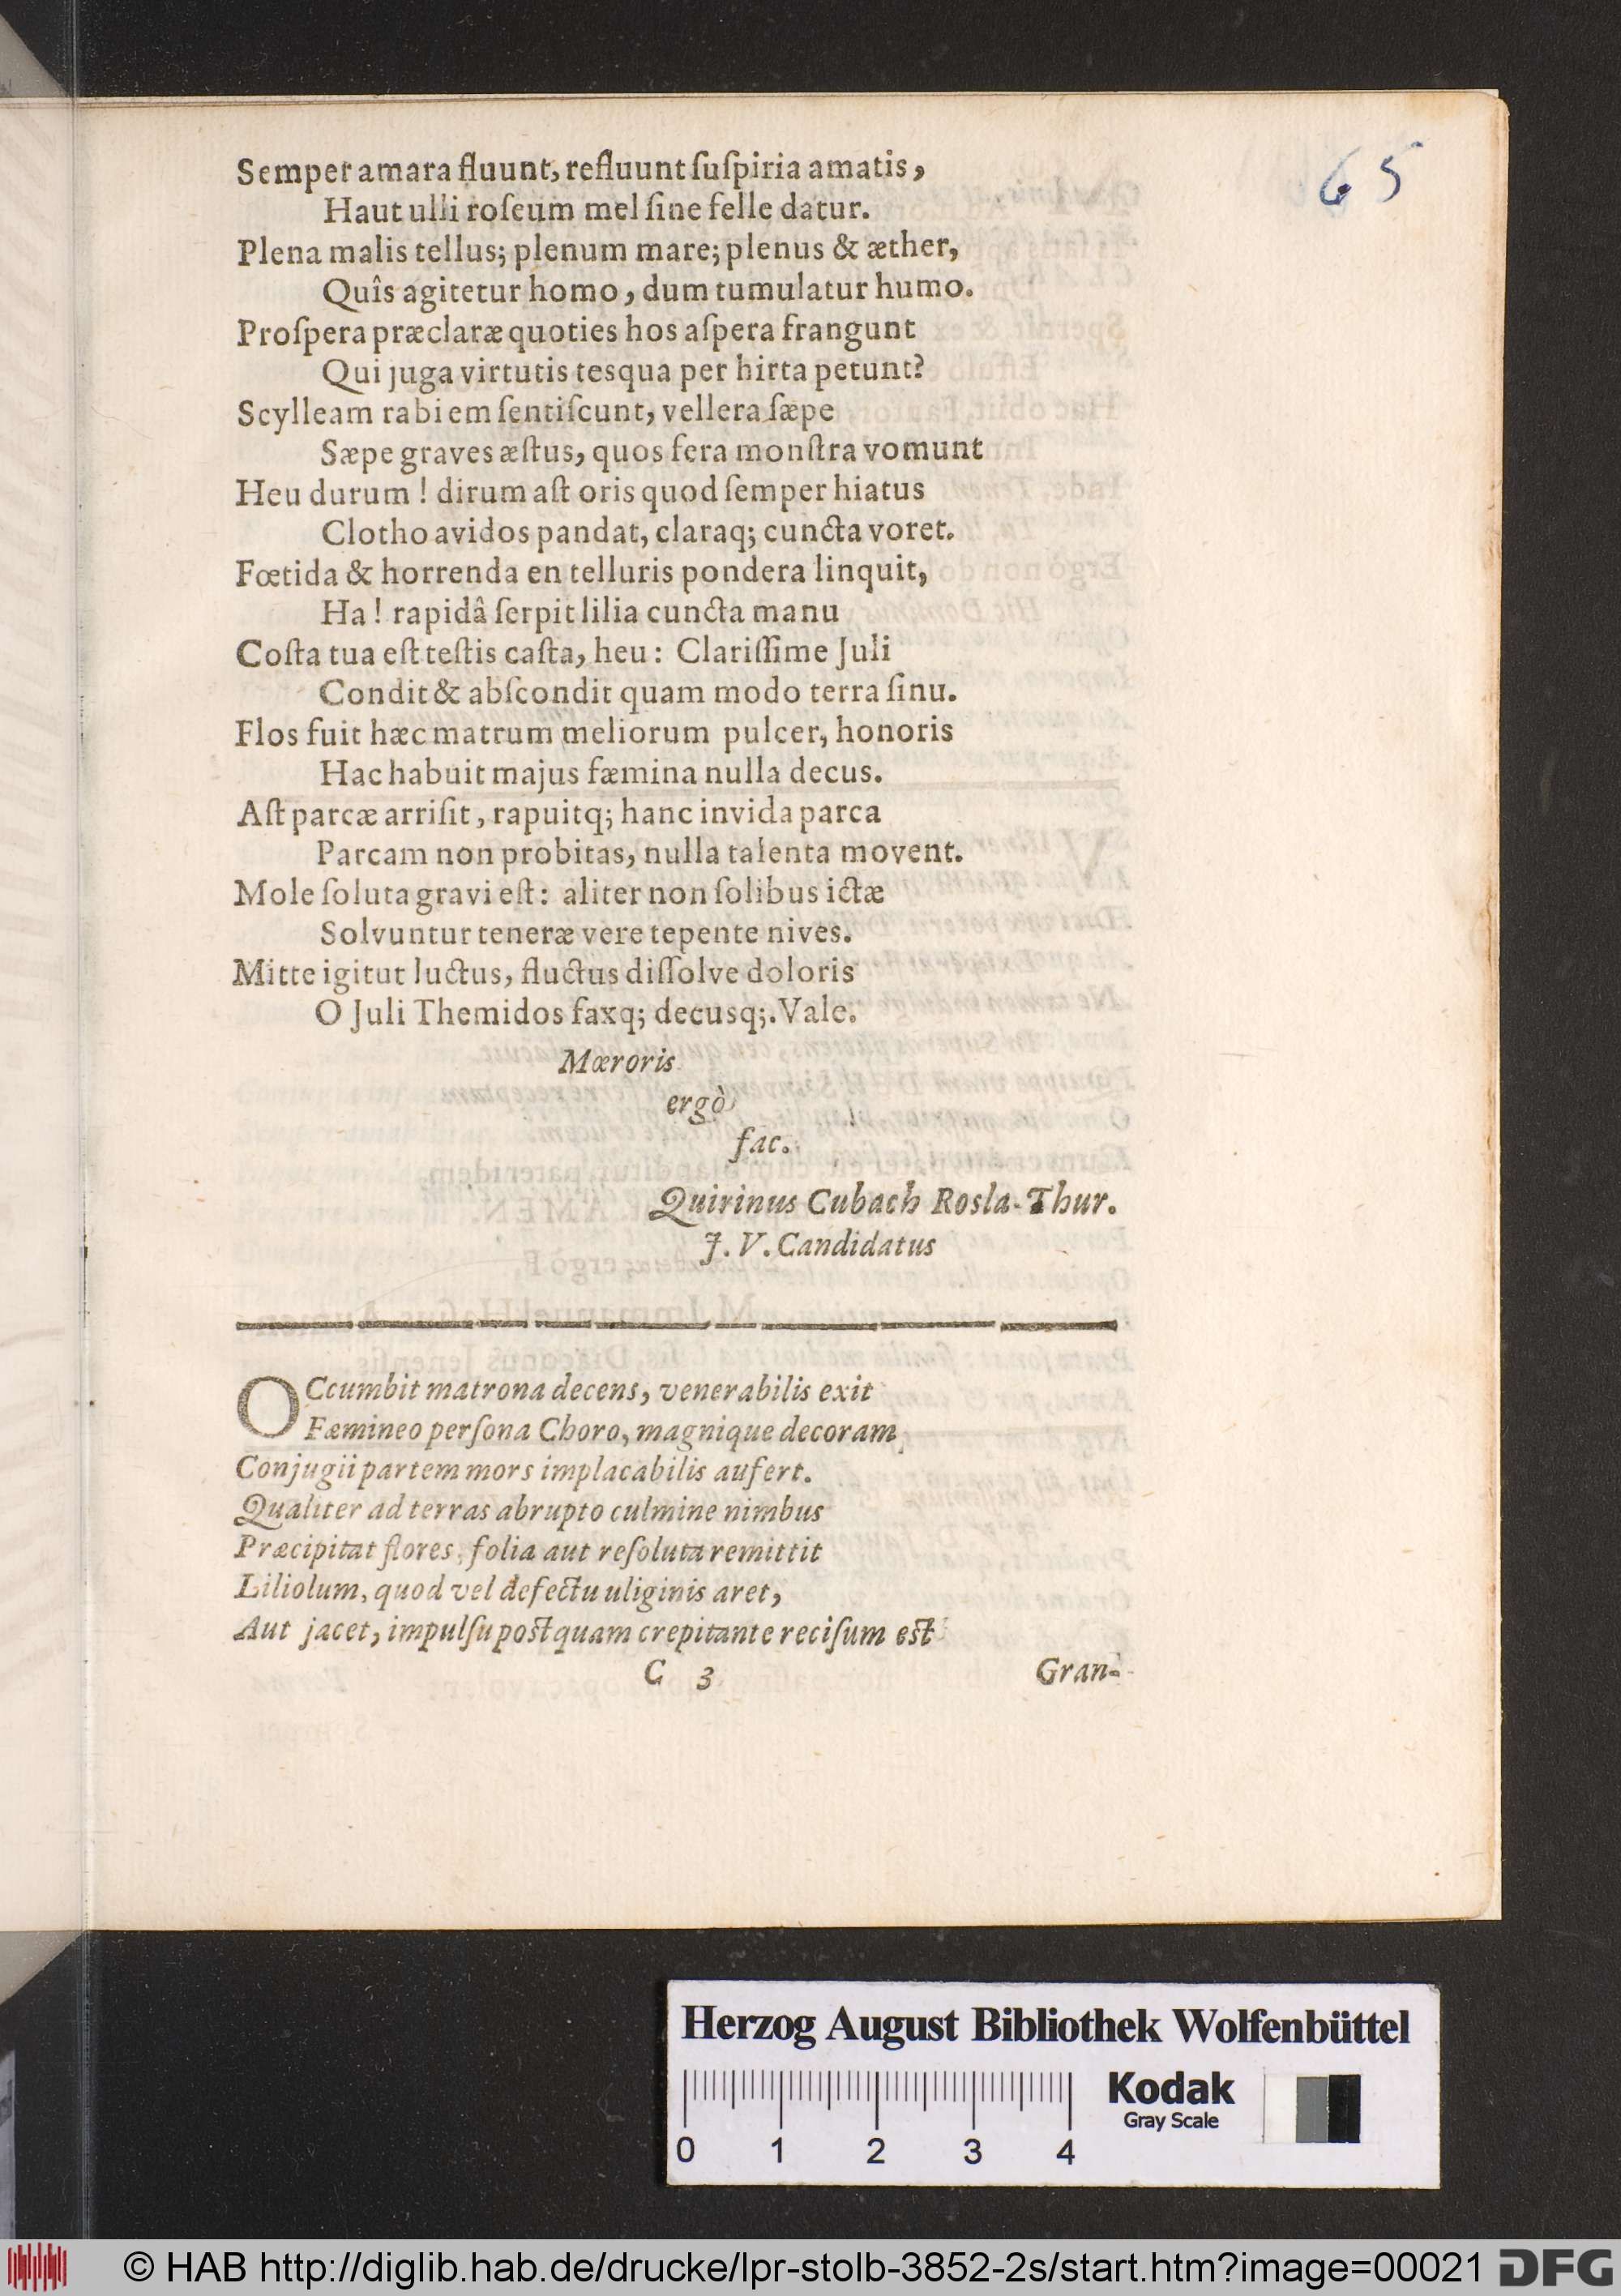 65
Semper amara fluunt, refluunt ſuſpiria amatis,
Haut ulli roſeum mel ſine felle datur.
Plena malis tellus; plenum mare; plenus & æther,
Quîs agitetur homo, dum tumulatur humo.
Proſpera præclaræ quoties hos aſpera frangunt
Qui juga virtutis tesqua per hirta petunt?
Scylleam rabiem ſentiſcunt, vellera ſæpe
Sæpe graves æſtus, quos fera monſtra vomunt
Heu durum! dirum aſt oris quod ſemper hiatus
Clotho avidos pandat, claraq; cuncta voret.
Fœtida & horrenda en telluris pondera linquit,
Ha! rapidâ ſerpit lilia cuncta manu
Coſta tua eſt teſtis caſta, heu: Clariſſime Juli
Condit & abſcondit quam modo terra ſinu.
Flos fuit hæc matrum meliorum pulcer, honoris
Hac habuit majus fæmina nulla decus.
Aſt parcæ arriſit, rapuitq; hanc invida parca
Parcam non probitas, nulla talenta movent.
Mole ſoluta gravi eſt: aliter non ſolibus ictæ
Solvuntur teneræ vere tepente nives.
Mitte igitut luctus, fluctus diſſolve doloris
O Juli Themidos faxq; decusq;. Vale.
Mœroris
ergò
fac.
Quirinus Cubach Rosla-Thur.
J. V. Candidatus
OCcumbit matrona decens, venerabilis exit
Fæmineo perſona Choro, magnique decoram
Conjugii partem mors implacabilis aufert.
Qualiter ad terras abrupto culmine nimbus
Præcipitat flores, folia aut reſoluta remittit
Liliolum, quod vel defectu uliginis aret,
Aut jacet, impulſu poſtquam crepitante reciſum eſt
C 3 Gran-
Herzog August Bibliothek Wolfenbüttel
Kodak
Gray Scale
0 1 2 3 4
© HAB http://diglib.hab.de/drucke/lpr-stolb-3852-2s/start.htm?image=00021 DFG